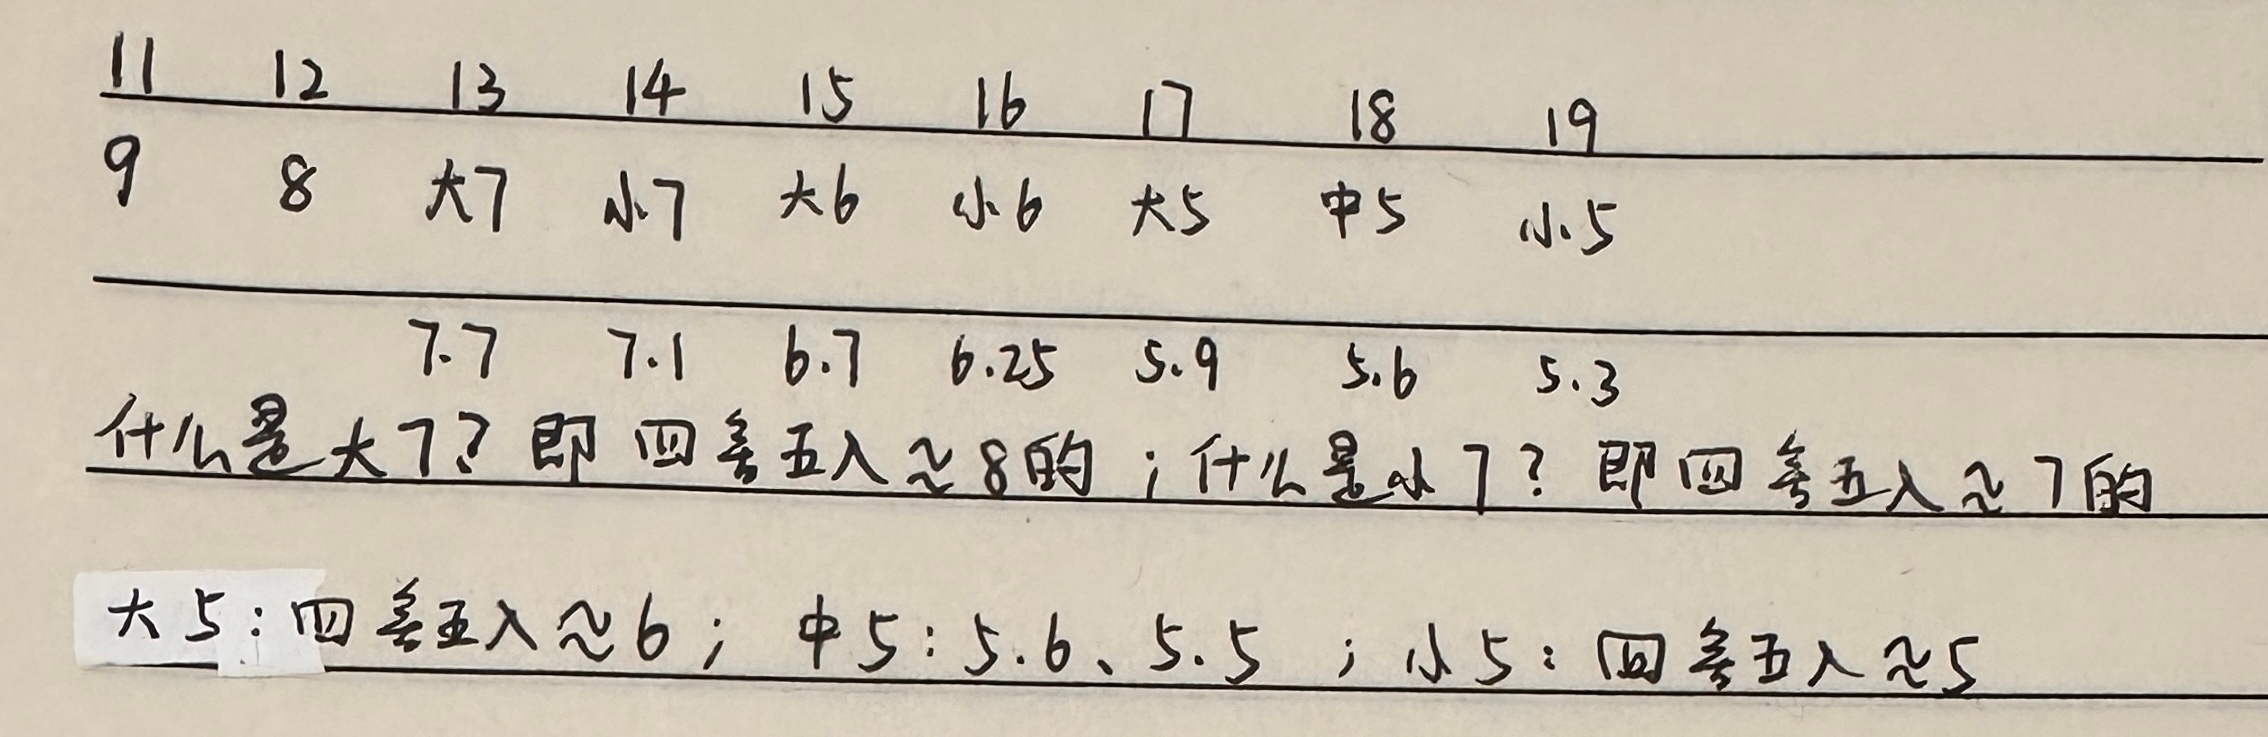 11 12 13 14 15 16 17 18 19
9 8 大7 小7 大6 小6 大5 中5 小5
7.7 7.1 6.7 6.25 5.9 5.6 5.3
什么是大7？即四舍五入≈8的；什么是小7？即四舍五入≈7的
大5：四舍五入≈6；中5：5.6、5.5；小5：四舍五入≈5